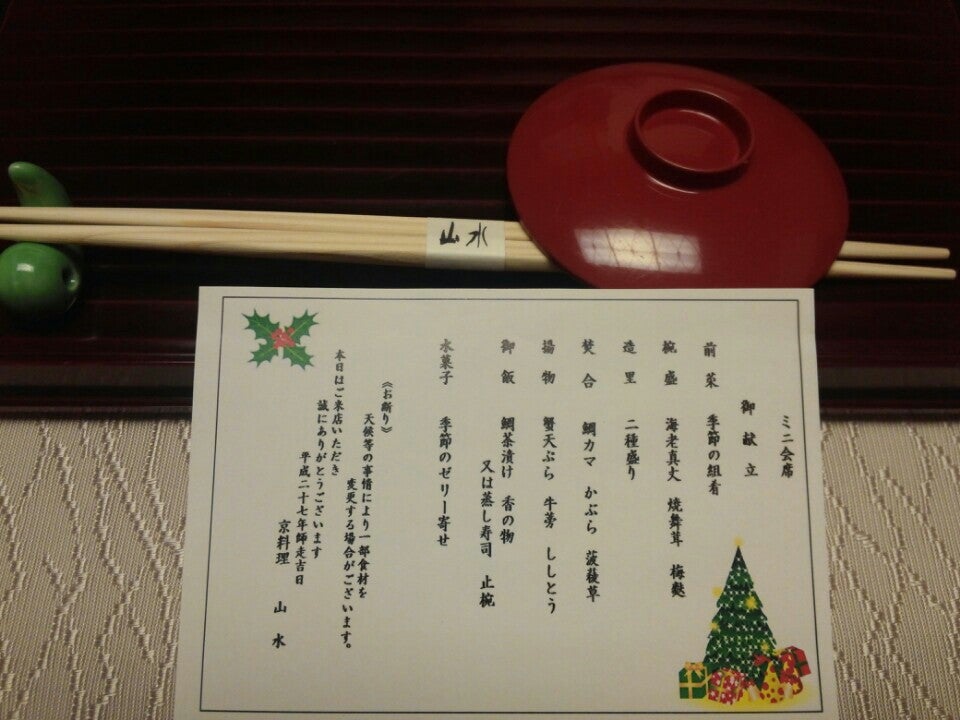 山水
ミニ会席
御献立
前菜 季節の組肴
椀盛 海老真丈 焼舞茸 梅麩
造里 二種盛り
焚合 鯛カマ かぶら 菠薐草
揚物 蟹天ぷら 牛蒡 ししとう
御飯 鯛茶漬け 香の物
又は蒸し寿司 止椀
水菓子 季節のゼリー寄せ
《お断り》
天候等の事情により一部食材を
変更する場合がございます。
本日はご来店いただき
誠にありがとうございます
平成二十七年師走吉日
京料理 山水